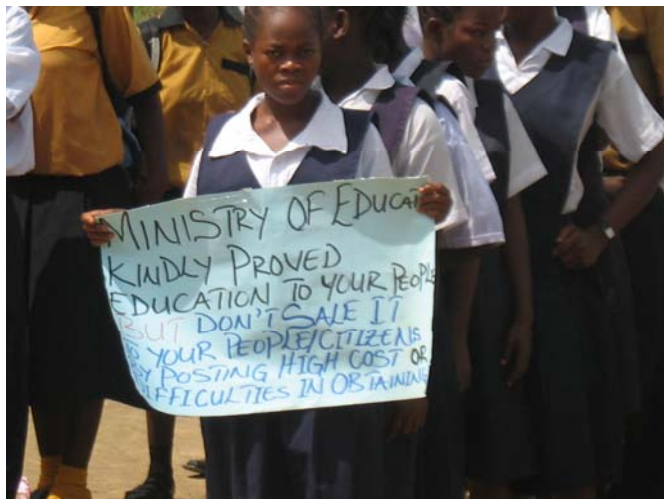 MINISTRY OF EDUCATI
KINDLY PROVED
EDUCATION TO YOUR PEOPLE
BUT DON'T SALE IT
TO YOUR PEOPLE/CITIZENS
BY POSTING HIGH COST OR
DIFFICULTIES IN OBTAINING